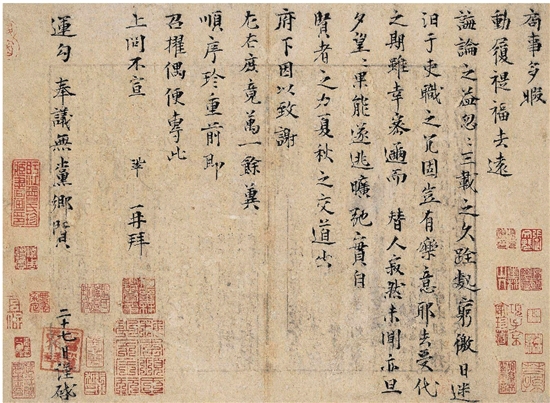 局事多暇
動履禔福去遠
誨論之益忽〻三載之久跧處窮徼日迷
汩于吏職之冗固豈有樂意耶去受代
之期雖幸密邇而替人寂然未聞亦旦
夕望〻果能遂逃曠弛實自
賢者之力夏秋之交道出
府下因以致謝
左右庶竟萬一餘冀
順序珍重前即
召擢偶便專此
上問不宣 鞏 再拜
運勾 奉議無黨鄉賢 二十七日謹啟